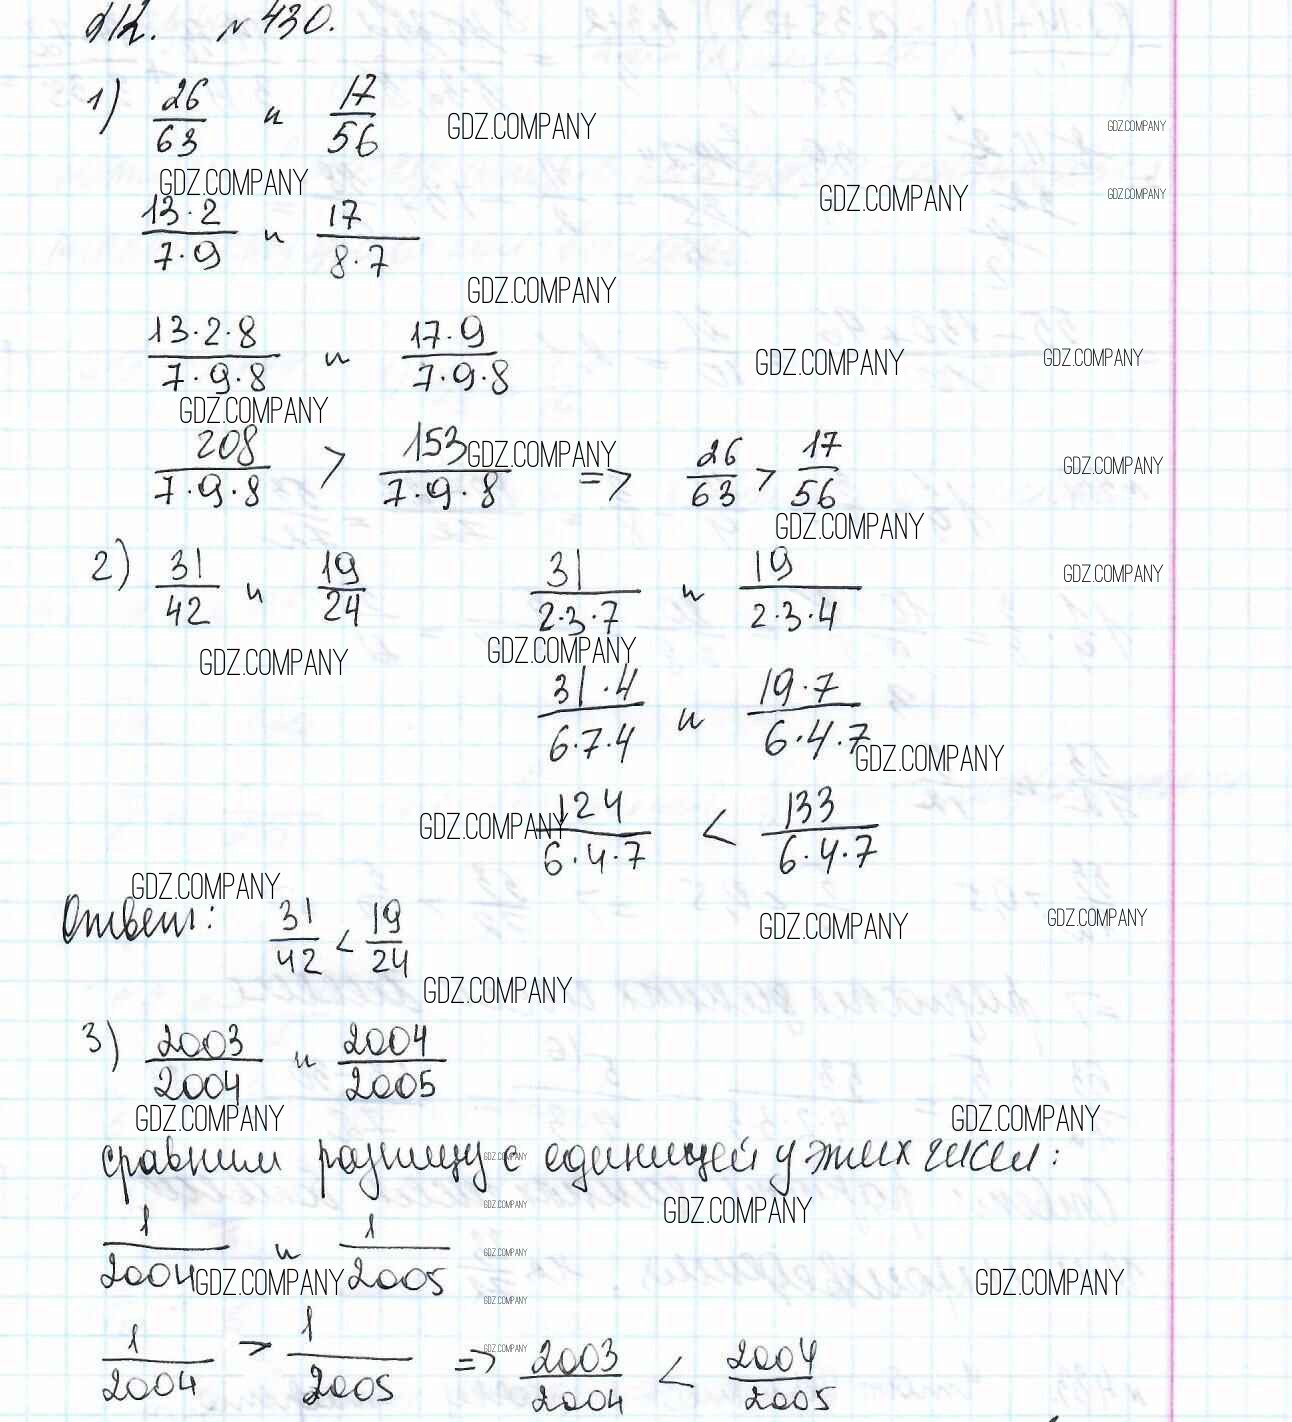 №430.
1) 26/63 и 17/56
GDZ.COMPANY GDZ.COMPANY
GDZ.COMPANY GDZ.COMPANY GDZ.COMPANY
13·2/7·9 и 17/8·7
GDZ.COMPANY
13·2·8/7·9·8 и 17·9/7·9·8
GDZ.COMPANY GDZ.COMPANY
GDZ.COMPANY
208/7·9·8 > 153/7·9·8 => 26/63 > 17/56
GDZ.COMPANY GDZ.COMPANY
GDZ.COMPANY
2) 31/42 и 19/24 31/2·3·7 и 19/2·3·4
GDZ.COMPANY
GDZ.COMPANY GDZ.COMPANY
31·4/6·7·4 и 19·7/6·4·7
GDZ.COMPANY
124/6·4·7 < 133/6·4·7
GDZ.COMPANY
GDZ.COMPANY
Ответ: 31/42 < 19/24
GDZ.COMPANY GDZ.COMPANY
GDZ.COMPANY
3) 2003/2004 и 2004/2005
GDZ.COMPANY GDZ.COMPANY
сравним разницу с единицей у этих чисел:
GDZ.COMPANY
GDZ.COMPANY GDZ.COMPANY
1/2004 и 1/2005
GDZ.COMPANY
GDZ.COMPANY GDZ.COMPANY
GDZ.COMPANY
1/2004 > 1/2005 => 2003/2004 < 2004/2005
GDZ.COMPANY